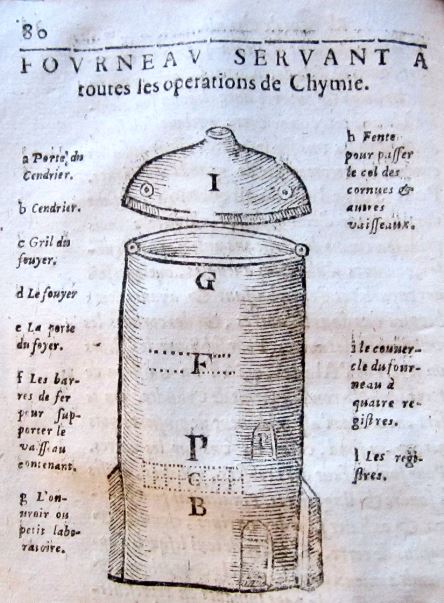 80
FOVRNEAV SERVANT A
toutes les operations de Chymie.
a Porte du
Cendrier.
b Cendrier.
c Gril du
fouyer.
d Le fouyer
e La porte
du foyer.
f Les bar-
res de fer
pour sup-
porter le
vaisseau
contenant.
g L'ou-
uroir ou
petit labo-
ratoire.
I
G
F
P
G
B
h Fente
pour passer
le col des
cornues &
autres
vaisseaux.
i le couuer-
cle du four-
neau à
quatre re-
gistres.
l Les regi-
stres.